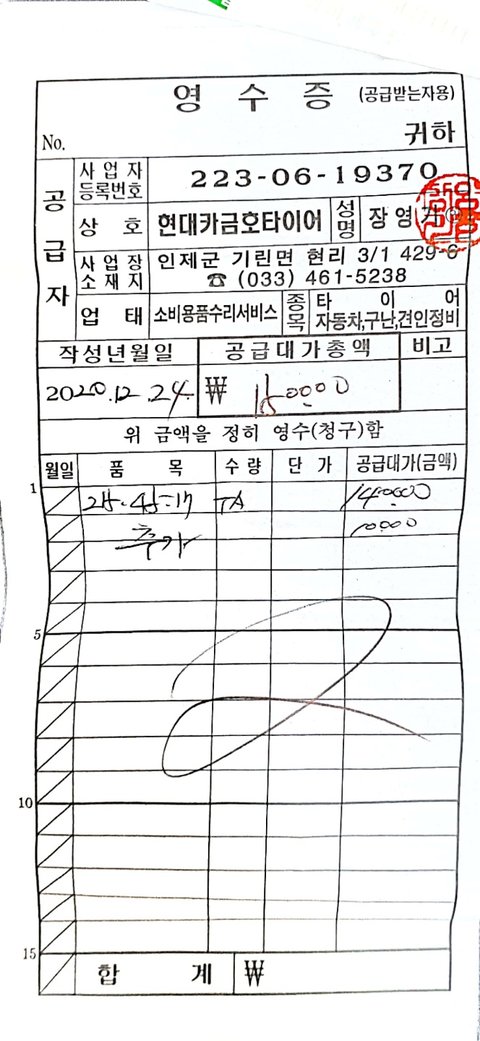 영 수 증 (공급받는자용)
No. 귀하
공급자
사업자등록번호 223-06-19370
상 호 현대카금호타이어 성명 장영
사업장소재지 인제군 기린면 현리 3/1 429-6
☎ (033) 461-5238
업 태 소비용품수리서비스 종목 타 이 어
자동차,구난,견인정비
작성년월일 공급대가총액 비고
2020.12.24. ₩ 150000
위 금액을 정히 영수(청구)함
월일 품 목 수 량 단 가 공급대가(금액)
1
140000
추가 10000
5
10
15
합 계 ₩